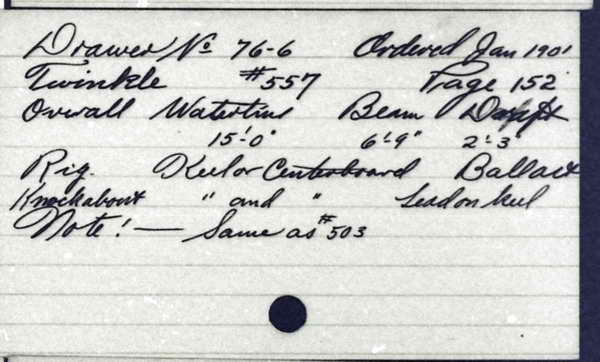 Drawer No 76-6 Ordered Jan 1901
Twinkle #557 Page 152
Overall Waterline Beam Draft
15'-0" 6'-9" 2'-3"
Rig. Keel or Centerboard Ballast
Knockabout " and " Lead on keel
Note! — Same as #503